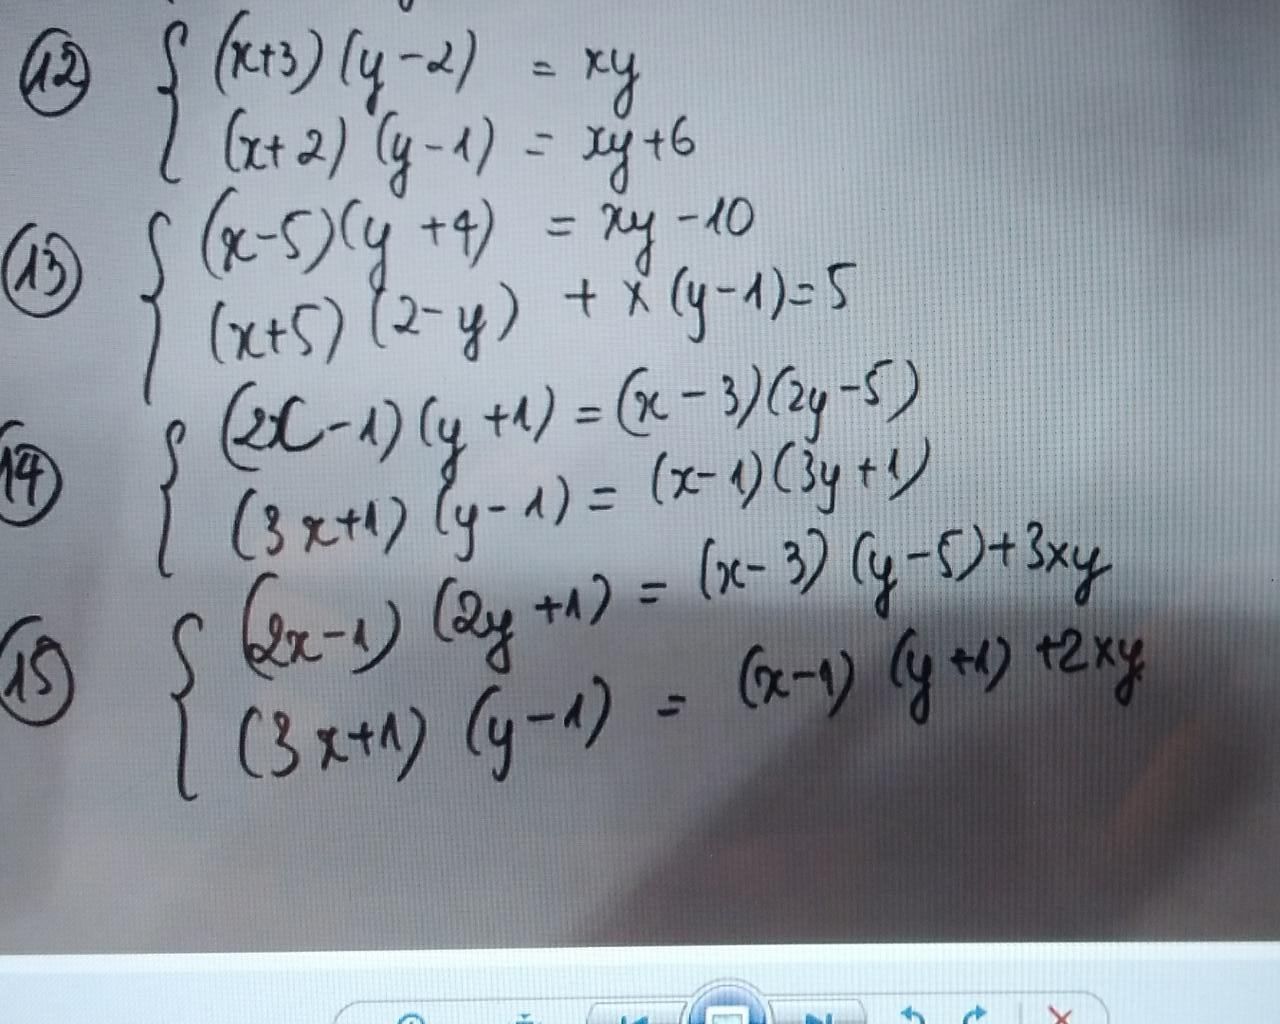 (12) { (x+3)(y-2) = xy
(x+2)(y-1) = xy+6
(13) { (x-5)(y+4) = xy-10
(x+5)(2-y) + x(y-1)=5
(14) { (2x-1)(y+1) = (x-3)(2y-5)
(3x+1)(y-1) = (x-1)(3y+1)
(15) { (2x-1)(2y+1) = (x-3)(y-5)+3xy
(3x+1)(y-1) = (x-1)(y+1)+2xy